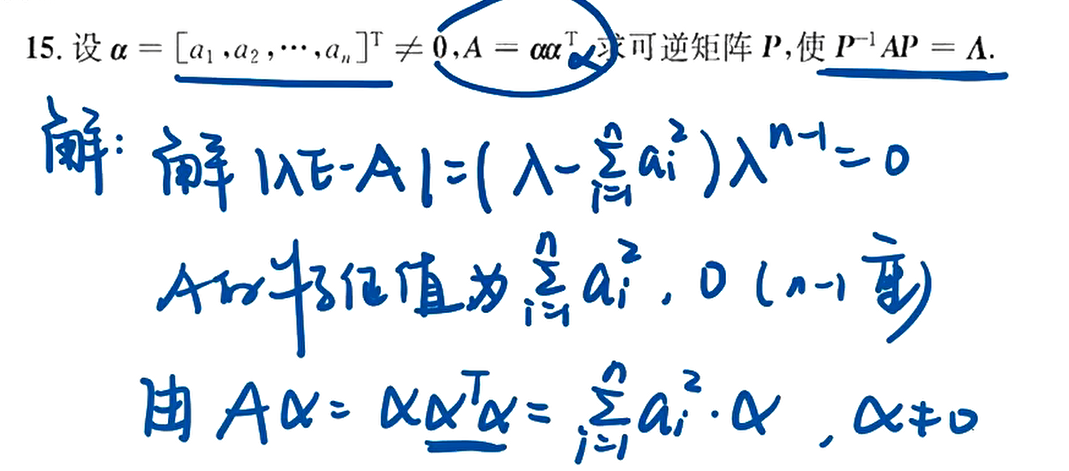 15. 设 α = [a₁,a₂,⋯,aₙ]ᵀ ≠ 0,A = ααᵀα,求可逆矩阵 P,使 P⁻¹AP = Λ.
解: 解 |λE-A|=(λ-∑ᵢ₌₁ⁿ aᵢ²)λⁿ⁻¹=0
A的特征值为 ∑ᵢ₌₁ⁿ aᵢ², 0 (n-1重)
由 Aα = ααᵀα = ∑ᵢ₌₁ⁿ aᵢ²·α , α≠0